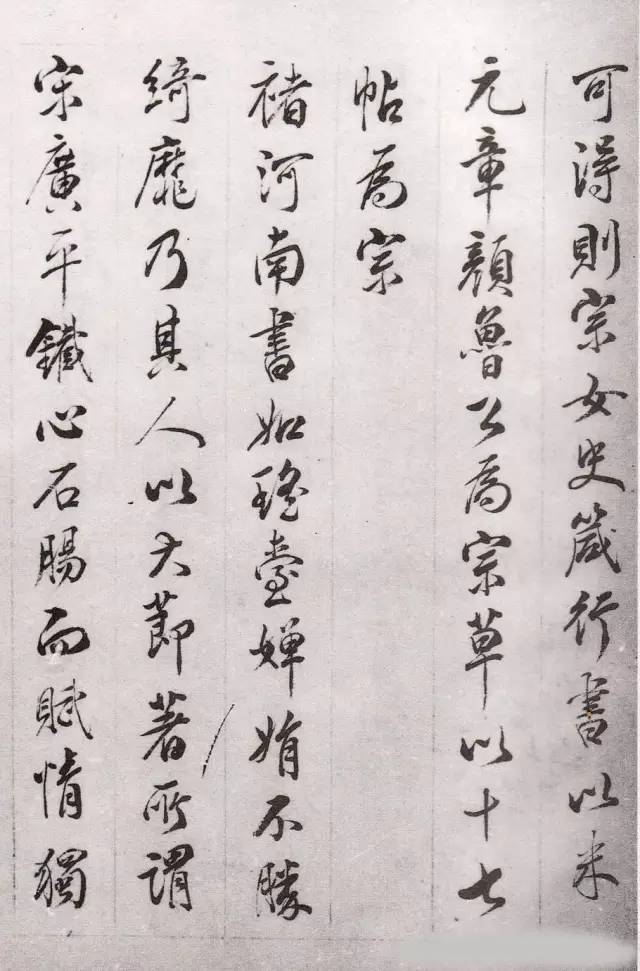 可得則宗女史箴行書以米
元章顔魯公為宗草以十七
帖為宗
褚河南書如瑤臺嬋娟不勝
綺靡乃其人以大節著所謂
宋廣平鐵心石腸而賦情獨